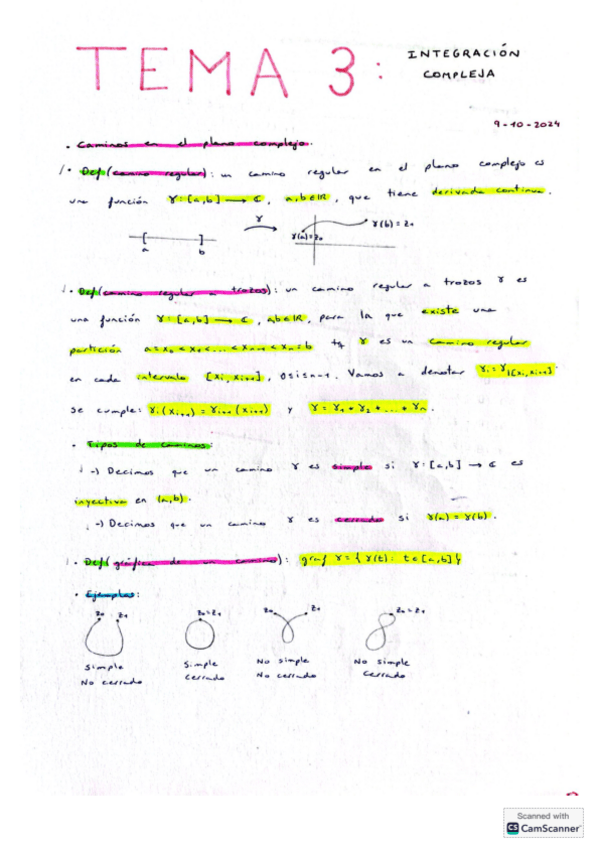 TEMA 3: INTEGRACIÓN
COMPLEJA
9-10-2024
· Caminos en el plano complejo.
· Def (camino regular): un camino regular en el plano complejo es
una función γ: [a,b] → ℂ, a,b∈ℝ, que tiene derivada continua.
γ
a b γ(a)=z₀ γ(b)=z₁
· Def (camino regular a trozos): un camino regular a trozos γ es
una función γ: [a,b] → ℂ, a,b∈ℝ, para la que existe una
partición a=x₀<x₁<...<xₙ₋₁<xₙ=b tq γ es un camino regular
en cada intervalo [xᵢ, xᵢ₊₁], 0≤i≤n-1. Vamos a denotar γᵢ=γ|[xᵢ,xᵢ₊₁]
se cumple: γᵢ(xᵢ₊₁)=γᵢ₊₁(xᵢ₊₁) y γ=γ₁+γ₂+...+γₙ.
· Tipos de caminos:
-) Decimos que un camino γ es simple si γ: [a,b] → ℂ es
inyectiva en (a,b).
-) Decimos que un camino γ es cerrado si γ(a)=γ(b).
· Def (gráfica de un camino): graf γ={γ(t): t∈[a,b]}
· Ejemplos:
z₀ z₁ z₀=z₁ z₀ z₁ z₀=z₁
Simple Simple No simple No simple
No cerrado cerrado No cerrado cerrado
Scanned with
CS CamScanner